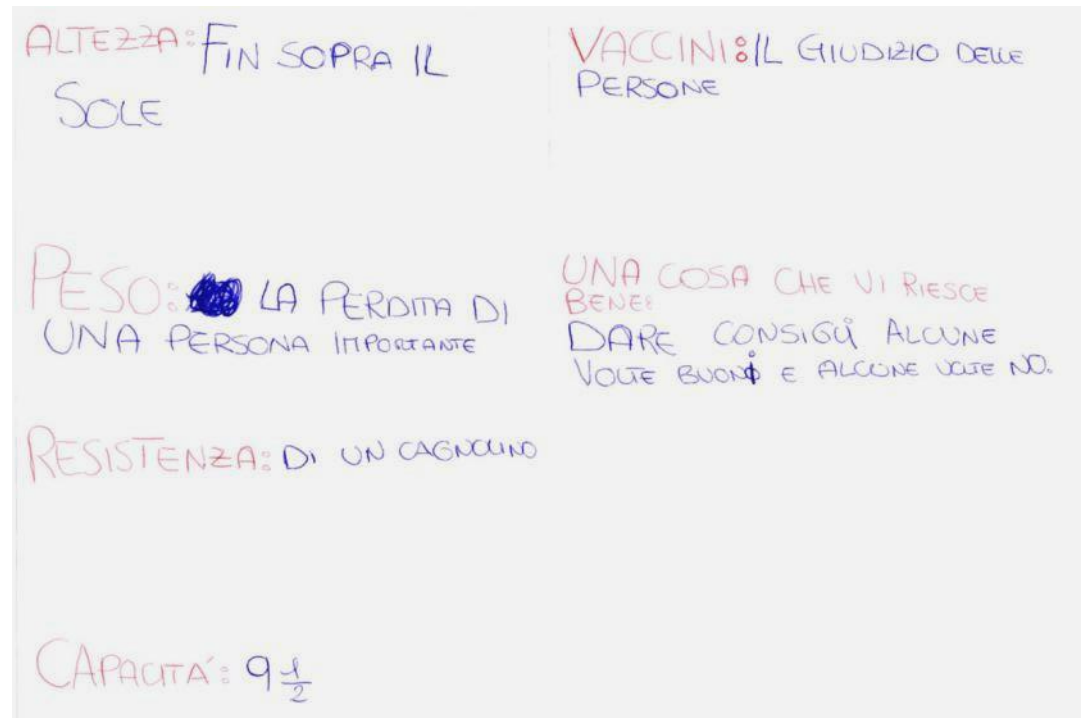 ALTEZZA: FIN SOPRA IL
SOLE
PESO: LA PERDITA DI
UNA PERSONA IMPORTANTE
RESISTENZA: DI UN CAGNOLINO
CAPACITÁ: 9 1/2
VACCINI: IL GIUDIZIO DELLE
PERSONE
UNA COSA CHE VI RIESCE
BENE:
DARE CONSIGLI ALCUNE
VOLTE BUONI E ALCUNE VOLTE NO.